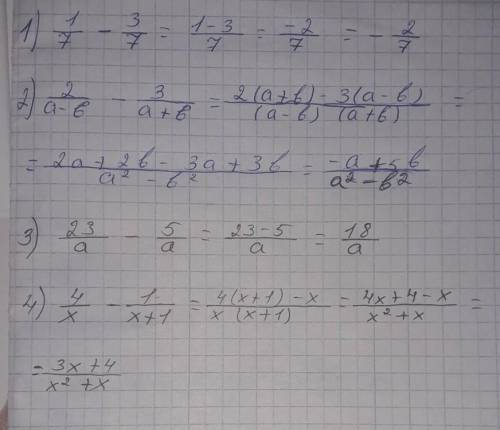 1) 1/7 - 3/7 = (1-3)/7 = -2/7 = - 2/7
2) 2/(a-b) - 3/(a+b) = (2(a+b) - 3(a-b))/((a-b)(a+b)) =
= (2a+2b-3a+3b)/(a²-b²) = (-a+5b)/(a²-b²)
3) 23/a - 5/a = (23-5)/a = 18/a
4) 4/x - 1/(x+1) = (4(x+1)-x)/(x(x+1)) = (4x+4-x)/(x²+x) =
= (3x+4)/(x²+x)